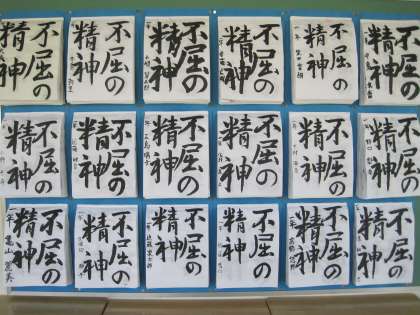 不屈の
精神
不屈の
精神
不屈の
精神
不屈の
精神
不屈の
精神
不屈の
精神
不屈の
精神
不屈の
精神
不屈の
精神
不屈の
精神
不屈の
精神
不屈の
精神
不屈の
精神
一年
不屈の
精神
不屈の
精神
不屈の
精神
不屈の
精神
不屈の
精神